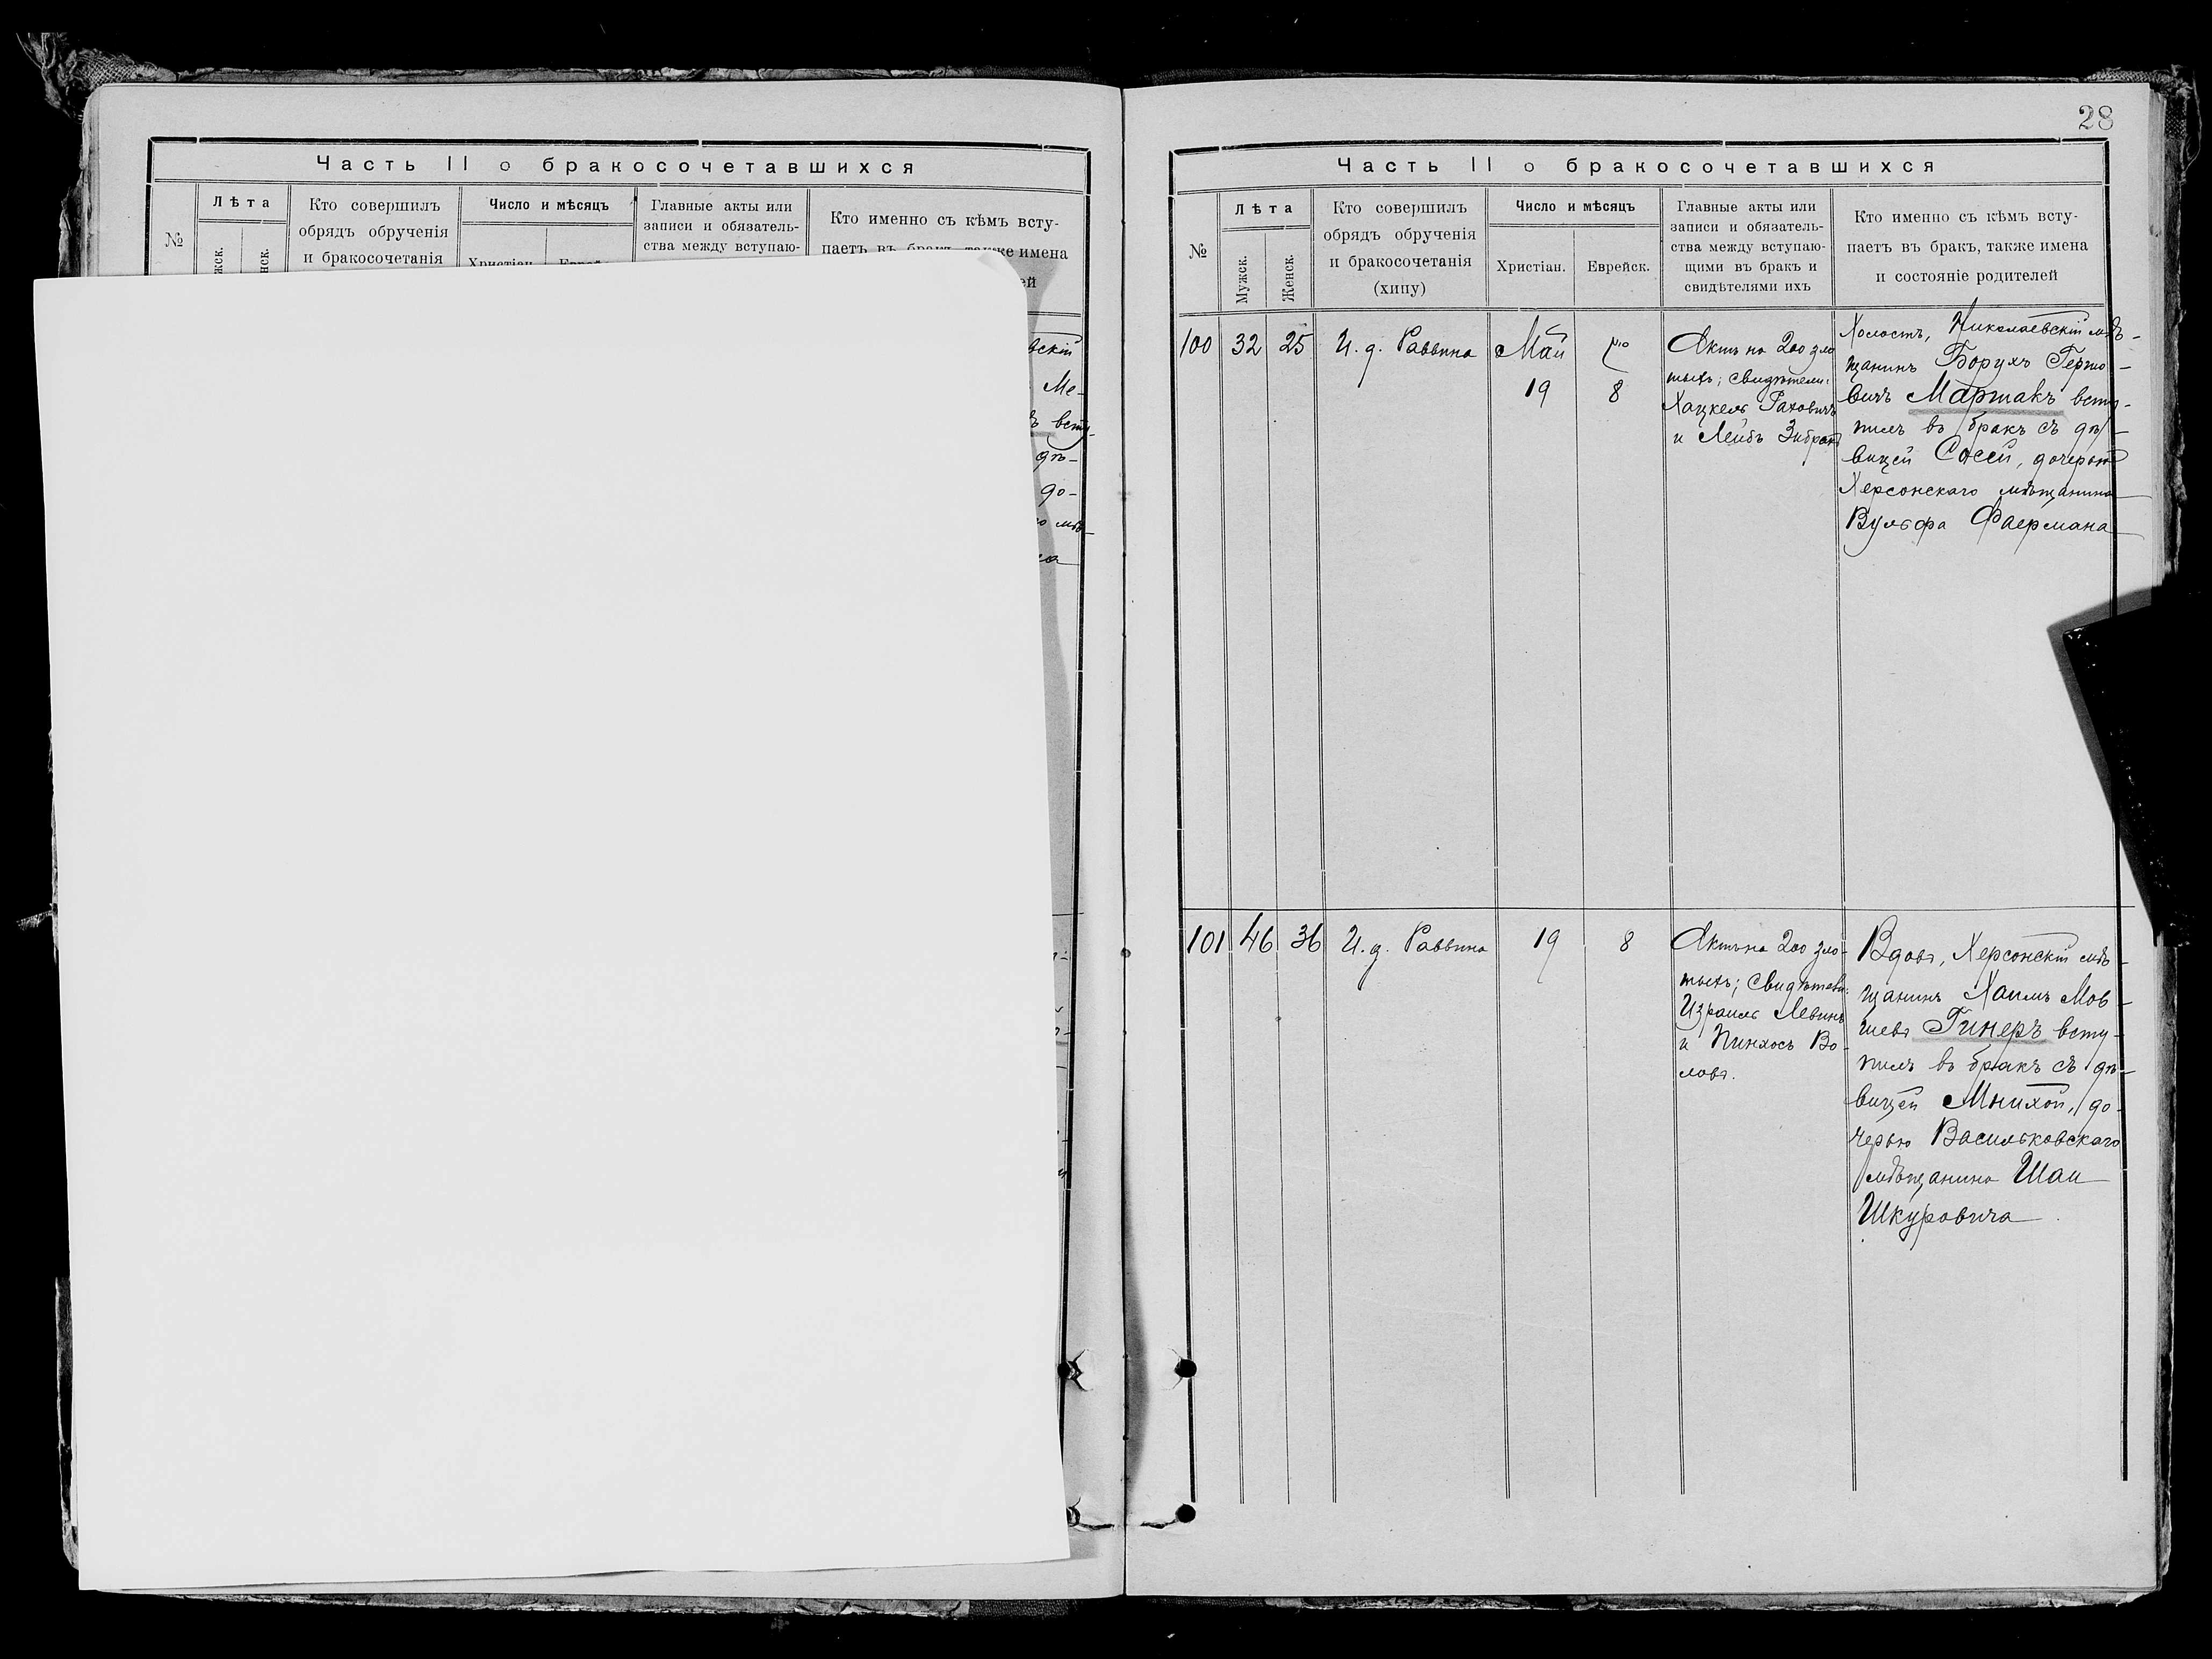 28
Часть II о бракосочетавшихся
№
Лѣта
Кто совершилъ
обрядъ обрученія
и бракосочетанія
Число и мѣсяцъ
Главные акты или
записи и обязатель-
ства между вступаю-
Кто именно съ кѣмъ всту-
паетъ въ
имена
вскій
Ме-
всту-
дѣ-
до-
мѣ-
Часть II о бракосочетавшихся
№
Лѣта
Мужск.
Женск.
Кто совершилъ
обрядъ обрученія
и бракосочетанія
(хипу)
Число и мѣсяцъ
Христіан.
Еврейск.
Главные акты или
записи и обязатель-
ства между вступаю-
щими въ бракъ и
свидѣтелями ихъ
Кто именно съ кѣмъ всту-
паетъ въ бракъ, также имена
и состояніе родителей
100
32
25
И. д. Раввина
Май
19
סיון
8
Актъ на 200 зло
тыхъ; свидѣтели:
Хацкель Гаховичъ
и Лейбъ
Холостъ, Николаевскій мѣ-
щанинъ Борухъ Гершо-
вичъ Мартакъ всту-
пилъ въ бракъ съ дѣ-
вицей Сосей, дочерью
Херсонскаго мѣщанина
Вульфа Фаермана
101
46
36
И. д. Раввина
19
8
Актъ на 200 зло-
тыхъ; свидѣтели:
Израиль Левинъ
и Пинхосъ Во-
ловъ.
Вдовъ, Херсонскій мѣ-
щанинъ Хаимъ Мов-
шевъ Гинеръ всту-
пилъ въ бракъ съ дѣ-
вицей Мнихой, до-
черью Васильковскаго
мѣщанина Шаи
Шкуровича